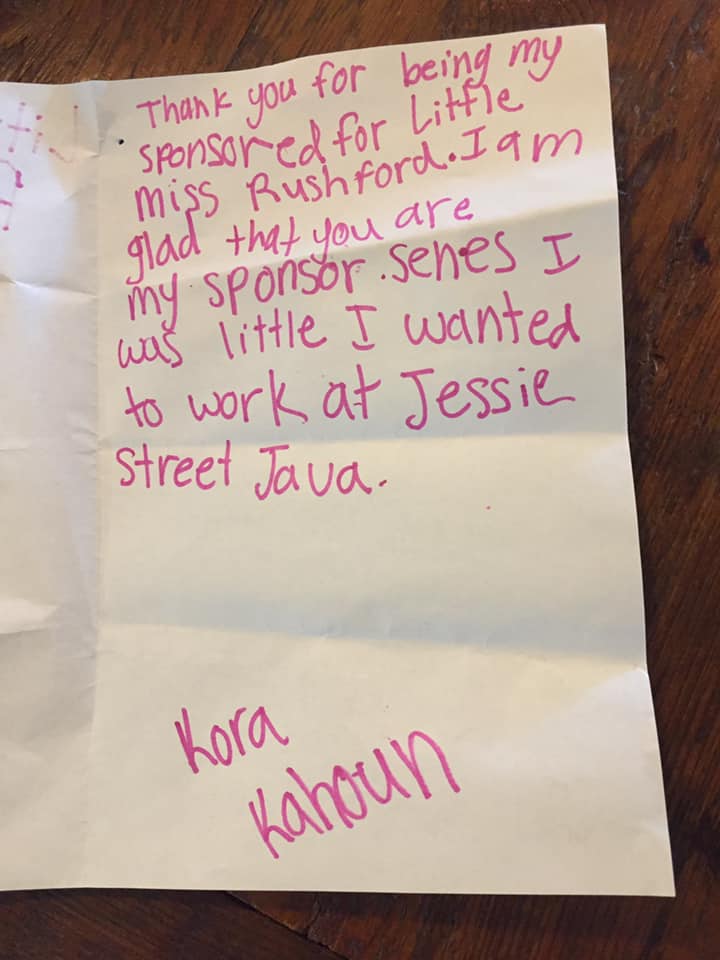 Thank you for being my
sponsored for Little
miss Rushford. I am
glad that you are
my sponsor. senes I
was little I wanted
to work at Jessie
Street Java.
Kora
Kahoun